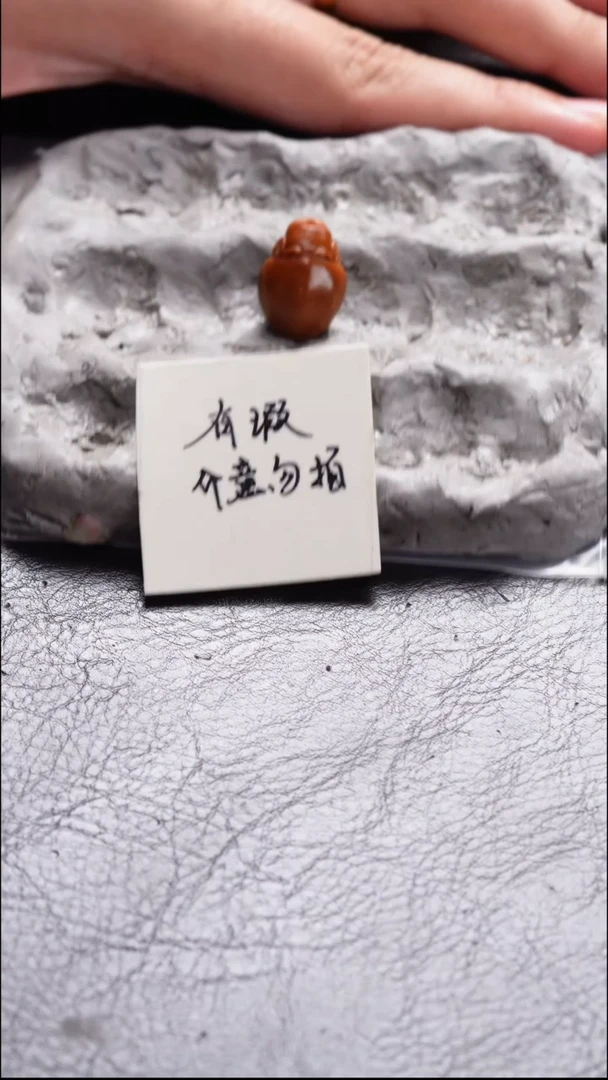 有瑕
介意勿拍